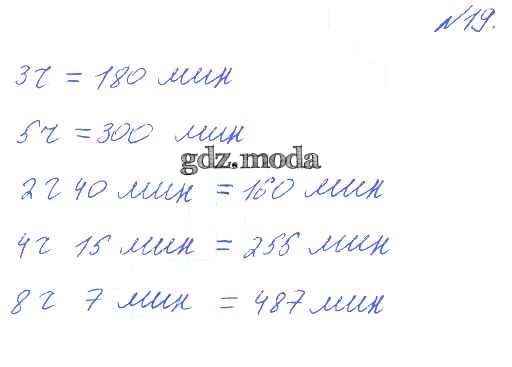 №19.
3ч = 180 мин
5ч = 300 мин
gdz.moda
2ч 40 мин = 160 мин
4ч 15 мин = 255 мин
8ч 7 мин = 487 мин